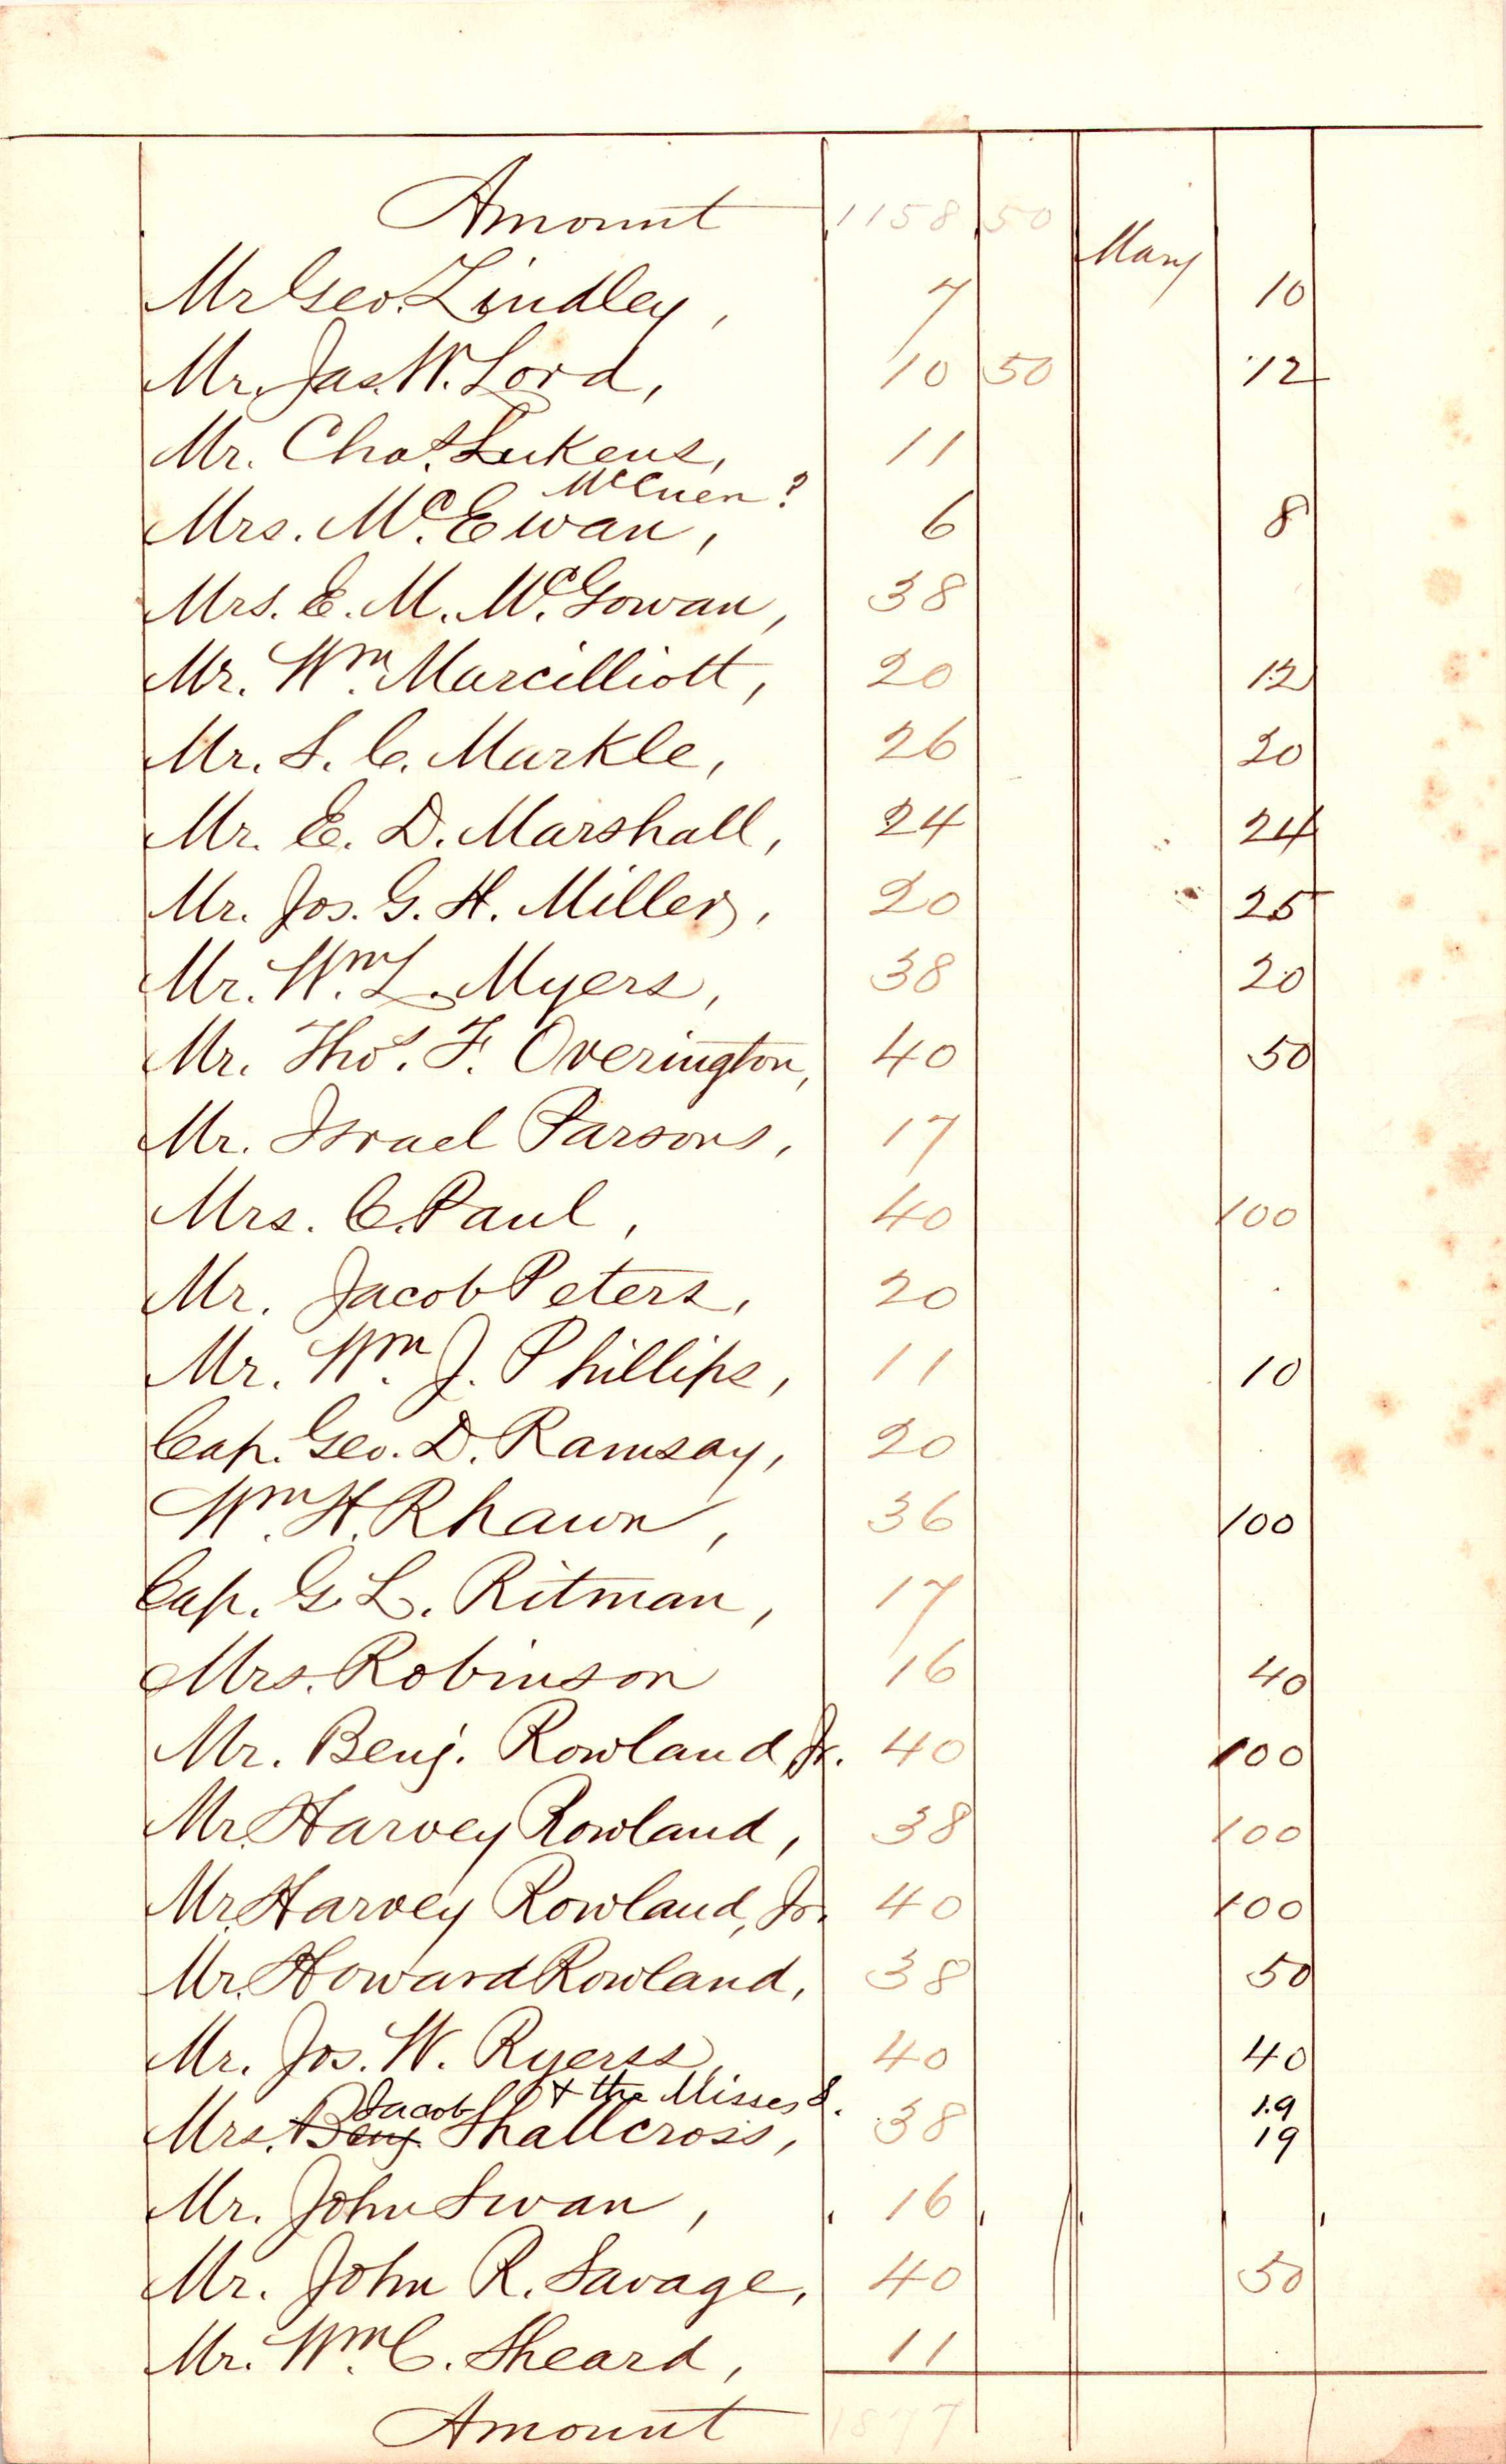 Amount 1158 50
Mary
Mr Geo. Lindley, 7 10
Mr. Jas. W. Lord, 10 50 12
Mr. Chas. Lukens, 11
McCuen?
Mrs. McEwan, 6 8
Mrs. E. M. McGowan, 38
Mr. Wm. Marcilliott, 20 12
Mr. S. C. Markle, 26 20
Mr. E. D. Marshall, 24 24
Mr. Jos. G. H. Miller, 20 25
Mr. Wm. L. Myers, 38 20
Mr. Thos. F. Overington, 40 50
Mr. Israel Parsons, 17
Mrs. C. Paul, 40 100
Mr. Jacob Peters, 20
Mr. Wm. J. Phillips, 11 10
Cap. Geo. D. Ramsay, 20
Wm. H. Rhawn, 36 100
Cap. G. L. Ritman, 17
Mrs. Robinson 16 40
Mr. Benj. Rowland Jr. 40 100
Mr. Harvey Rowland, 38 100
Mr. Harvey Rowland, Jr. 40 100
Mr. Howard Rowland, 38 50
Mr. Jos. W. Ryerss, 40 40
Jacob & the Misses S. 19
Mrs. Benj. Shallcross, 38 19
Mr. John Swan, 16
Mr. John R. Savage, 40 50
Mr. Wm. C. Sheard, 11
Amount 1877